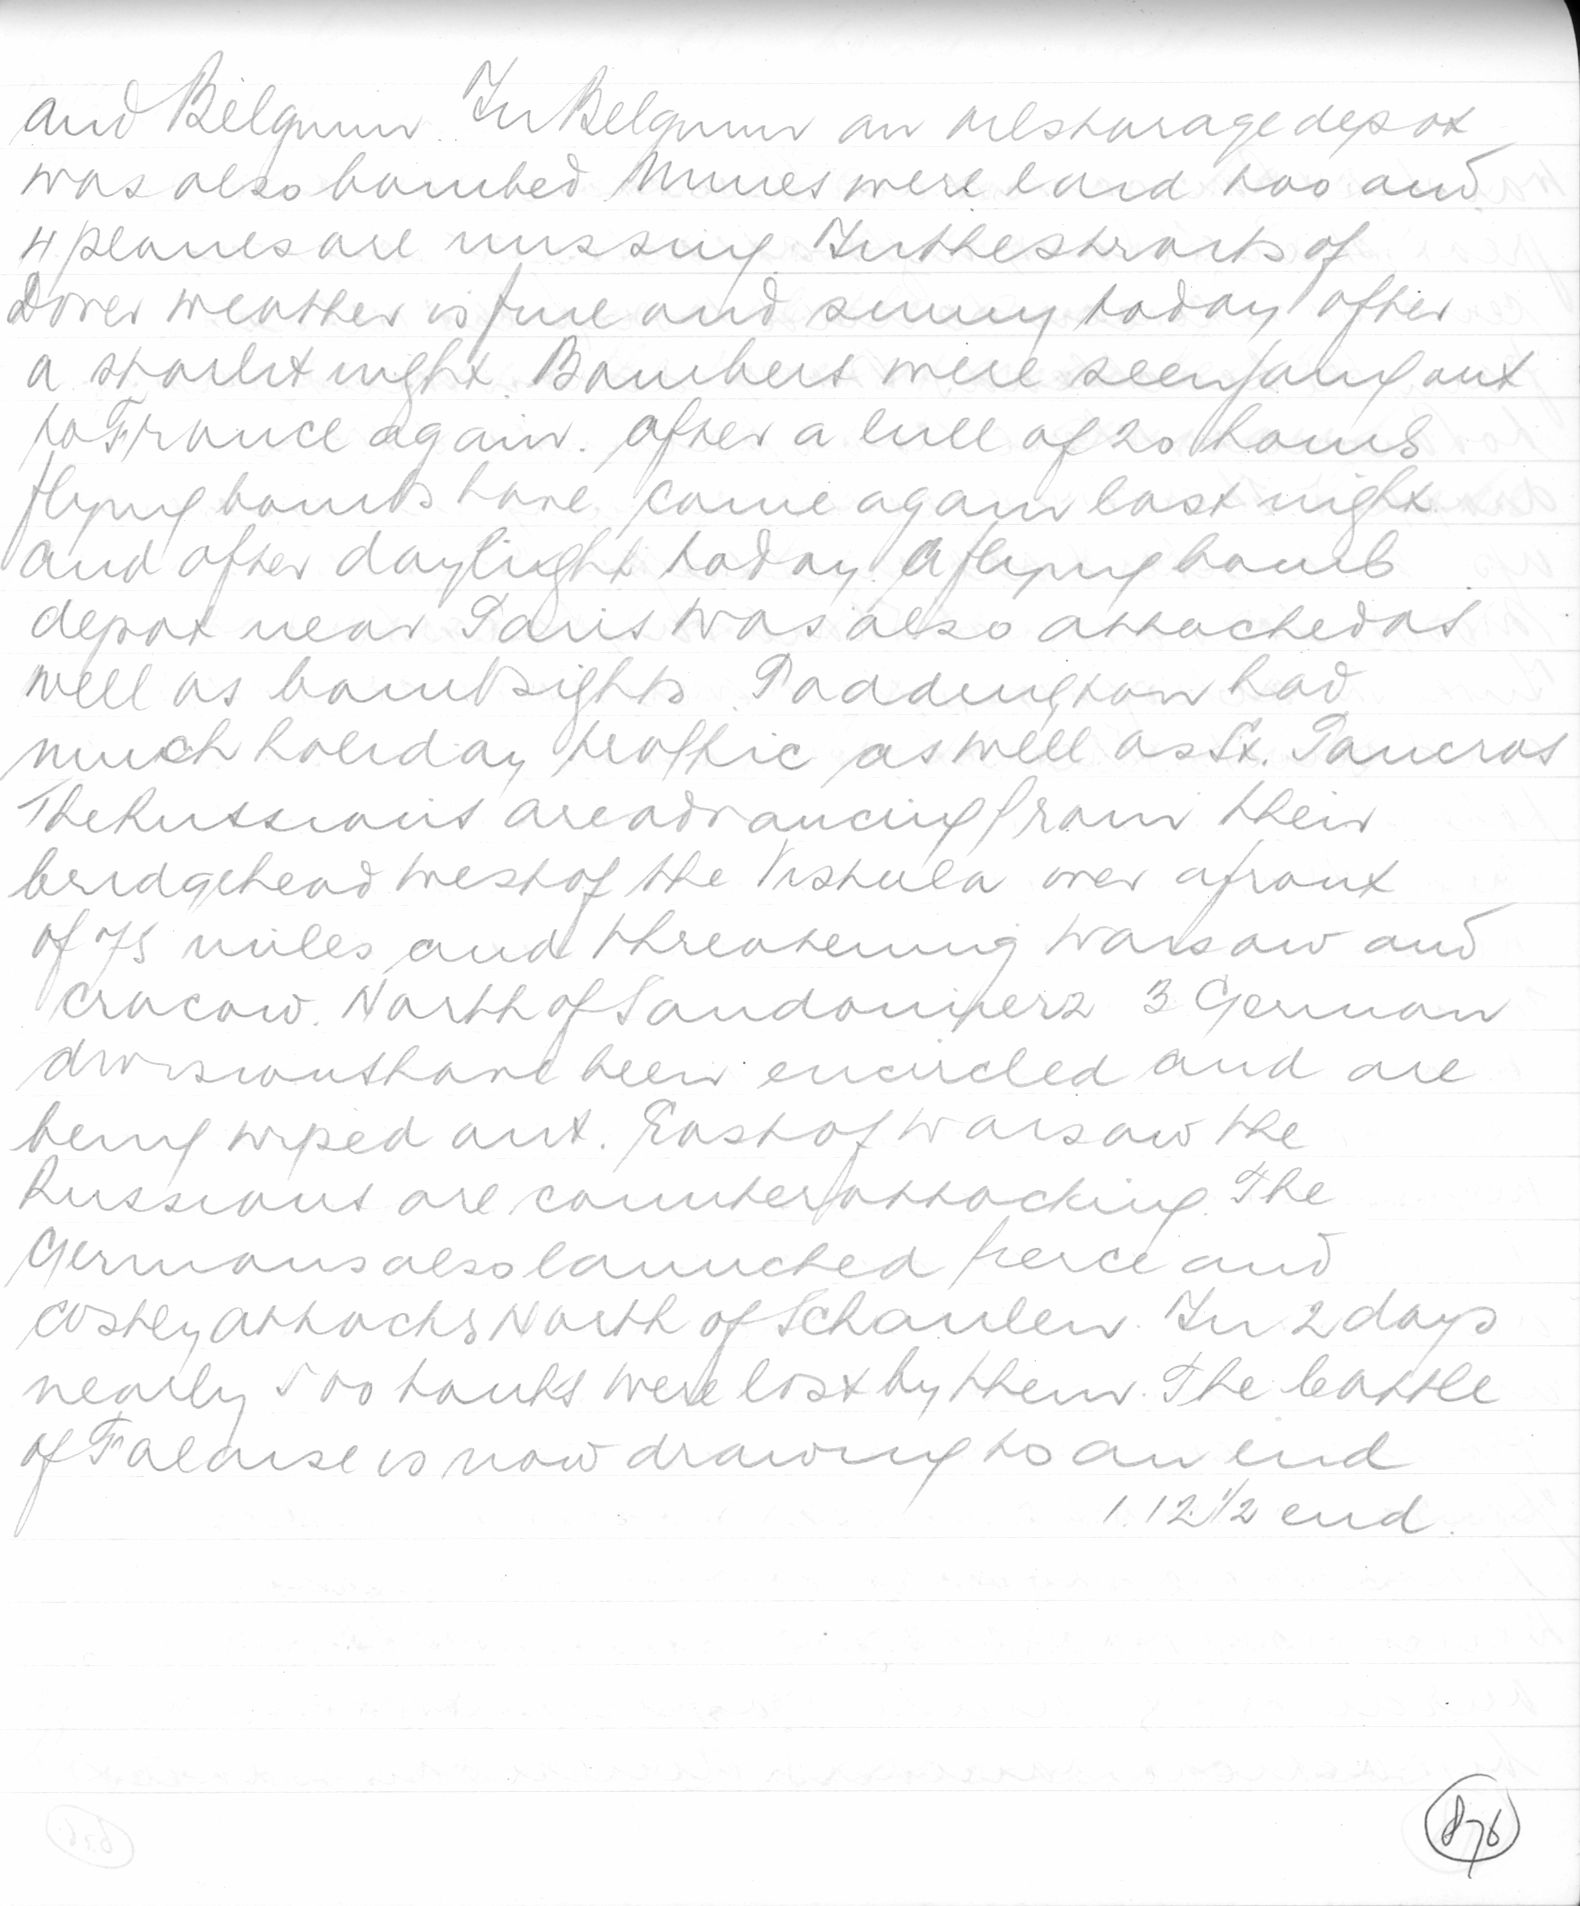 and Belgium. In Belgium an oilstorage depot
was also bombed Mines were laid too and
4 planes are missing. In the straits of
Dover weather is fine and sunny today after
a starlit night. Bombers were seen going out
to France again. After a lull of 20 hours
flying bombs have come again last night
and after daylight today. A flying bomb
depot near Paris was also attacked as
well as bombsights. Paddington had
much holiday traffic as well as St. Pancras
The Russians are advancing from their
bridgehead west of the Vistula over a front
of 75 miles and threatening Warsaw and
Cracow. North of Sandomierz 3 German
divisions have been encircled and are
being wiped out. East of Warsaw the
Russians are counterattacking. The
Germans also launched fierce and
costly attacks North of Schaulen. In 2 days
nearly 500 tanks were lost by them. The battle
of Falaise is now drawing to an end
1.12.1/2 end.
876